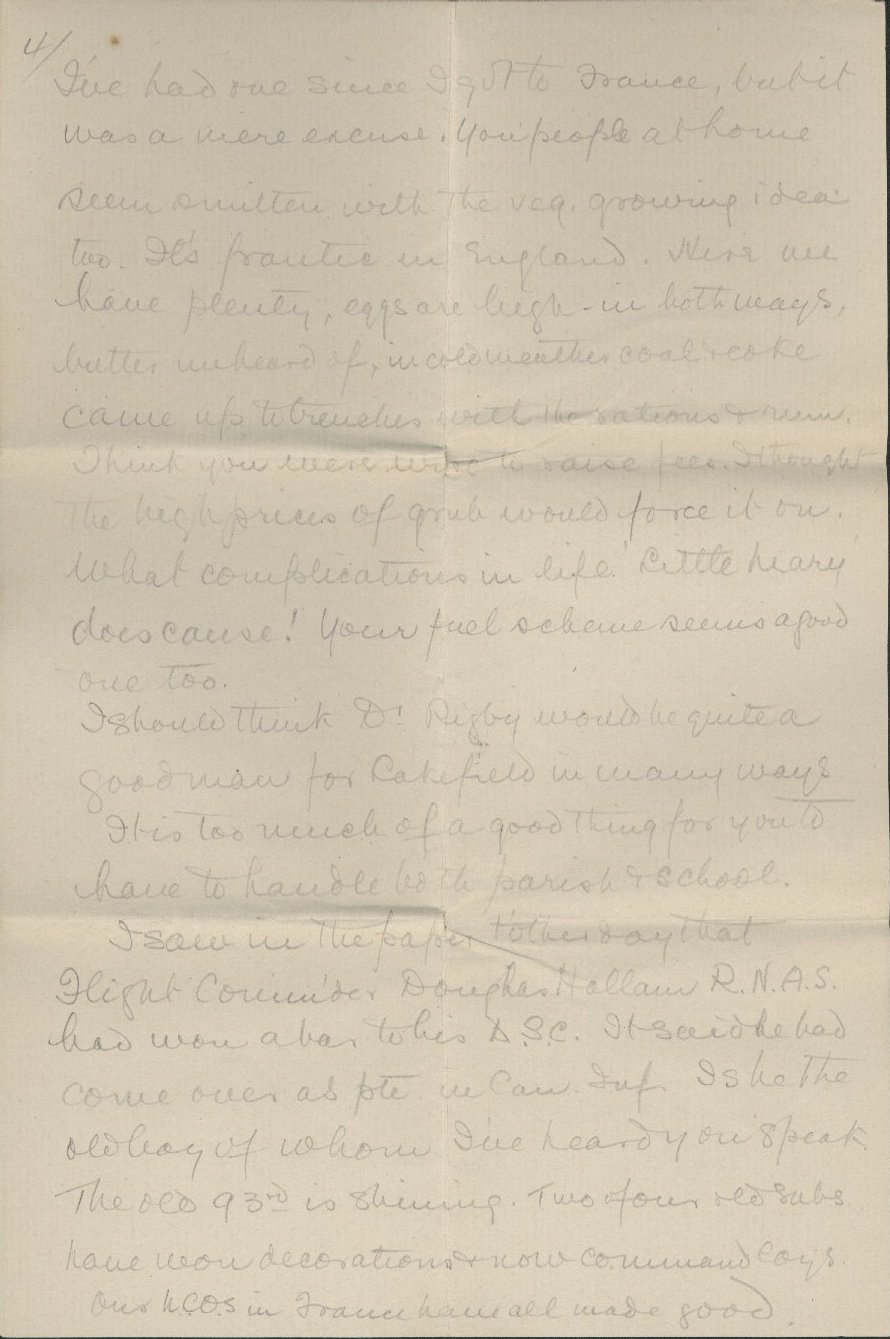 4/
I've had one since I got to France, but it
was a mere excuse. You people at home
seem smitten with the veg. growing idea
too. It's frantic in England. Here we
have plenty; eggs are high - in both ways,
butter unheard of, in cold weather coal & coke
came up to trenches with the rations & rum.
Think you were wise to raise fees. I thought
the high prices of grub would force it on.
What complications in life 'Little Mary'
does cause! Your fuel scheme seems a good
one too.
I should think Dr Rigby would be quite a
good man for Lakefield in many ways
It is too much of a good thing for you to
have to handle both parish & school.
I saw in the paper t'other day that
Flight Comm'der Douglas Hallam R.N.A.S.
had won a bar to his D.S.C. It said he had
come over as pte. in Can. Inf. Is he the
old boy of whom I've heard you speak
The old 93rd is shining. Two of our old subs
have won decorations & now command coys.
Our N.C.O.s in France have all made good.